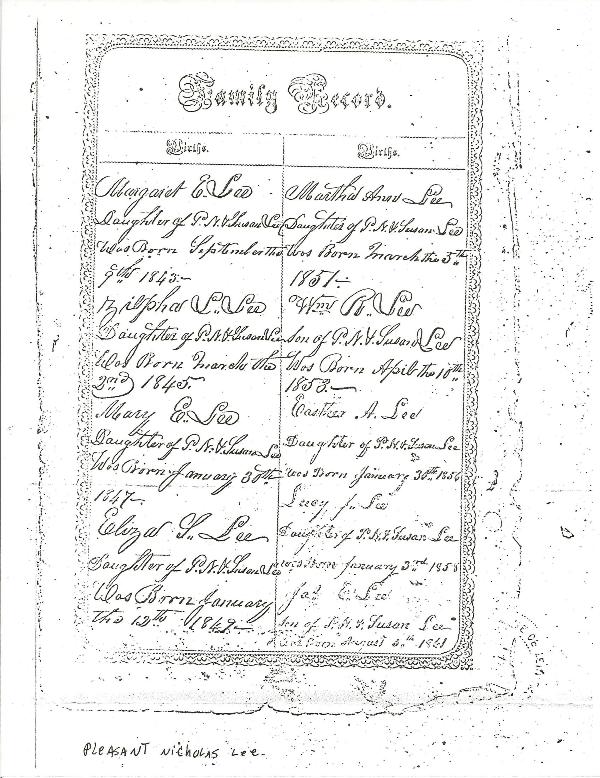 Family Record.
Births.
Margaret E. Lee
Daughter of P. N. & Susan Lee
Was Born September the
9th 1843.—
Zilpha L. Lee
Daughter of P. N. & Susan Lee
Was Born March the
22nd 1845.
Mary E. Lee
Daughter of P. N. & Susan Lee
Was Born January 30th
1847.—
Eliza S. Lee
Daughter of P. N. & Susan Lee
Was Born January
the 12th 1849.—
Births.
Martha Ann Lee
Daughter of P. N. & Susan Lee
Was Born March the 5th
1851—
Wm R. Lee
Son of P. N. & Susan Lee
Was Born April the 10th
1853.—
Easther A. Lee
Daughter of P. N. & Susan Lee
Was Born January 30th 1856
Lucy J. Lee
Daughter of P. N. & Susan Lee
was Born January 3rd 1858
Jas E. Lee
Son of P. N. & Susan Lee
Was Born August th 1861
PLEASANT NICHOLAS LEE.